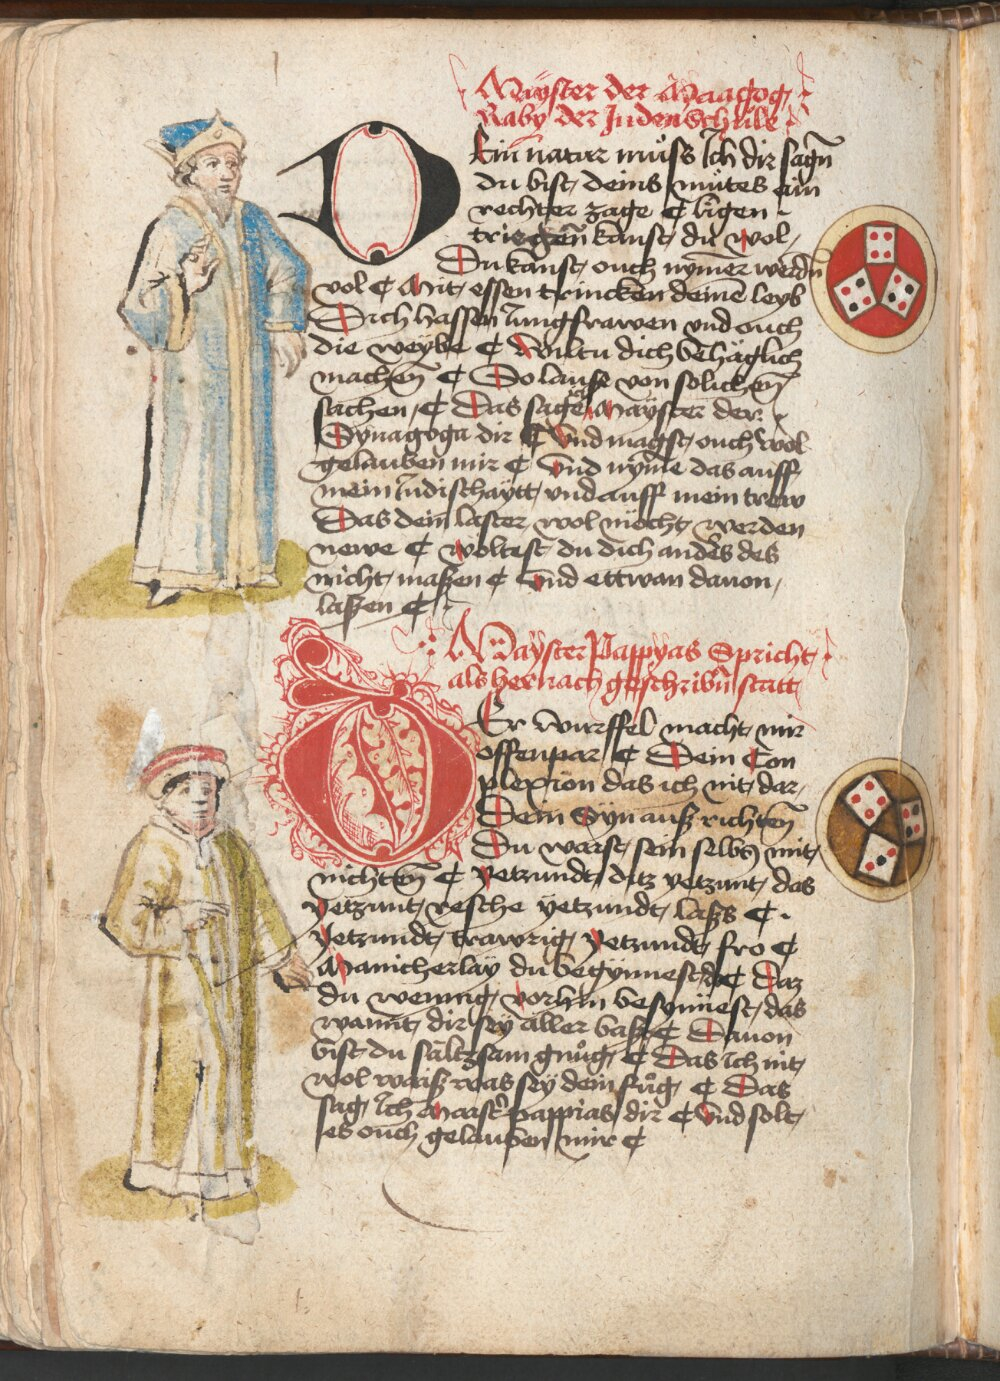 Mayster der Sinagog
Raby der Juden Schule
Dein natur muͦss Ich dir sagn̄
du bist deins muͦtes ain
rechter zage ¢ ligen
triegen kanst du wol
Du kanst ouch nymer werdn̄
vol ¢ Mit essen trincken deinē leyb
Dich hassen Jungfrawen vnd ouch
die weybe ¢ Wiltu dich behäglich
machen ¢ So lauss von solichen
sachen ¢ Das sag Mayster der
Synagoga dir ¢ Vnd magst ouch wol
gelauben mir ¢ Vnd nyme das auff
mein Judischaytt vnd auff mein trew
Das dein laster wol möcht werden
newe ¢ Woltest du dich anders des
nicht maßen ¢ Vnd ettwan dauon
laßen ¢
Mayster Pappyas Spricht
als hernach geschribn̄ statt
Der Wurffel macht mir
offenpar ¢ Dein Con
plexion das ich nit dar
Dein Syn auß richten
Du warst sein selbs mit
nichten ¢ Yetzundt ditz yetzunt das
Yetzunt resche yetzundt lass ¢
Yetzundt trawrig Yetzundt fro ¢
Manicherlay du begynnest ¢ Daz
du wennig vorhin besynnest das
wannt dir sey aller bass ¢ Dauon
bist du sältzsam gnuͦg ¢ Das Ich nit
wol waiß was sey dein fuͦg ¢ Das
sag Ich Maistʳ pappias dir ¢ Vnd solt
es ouch gelauben mir ¢